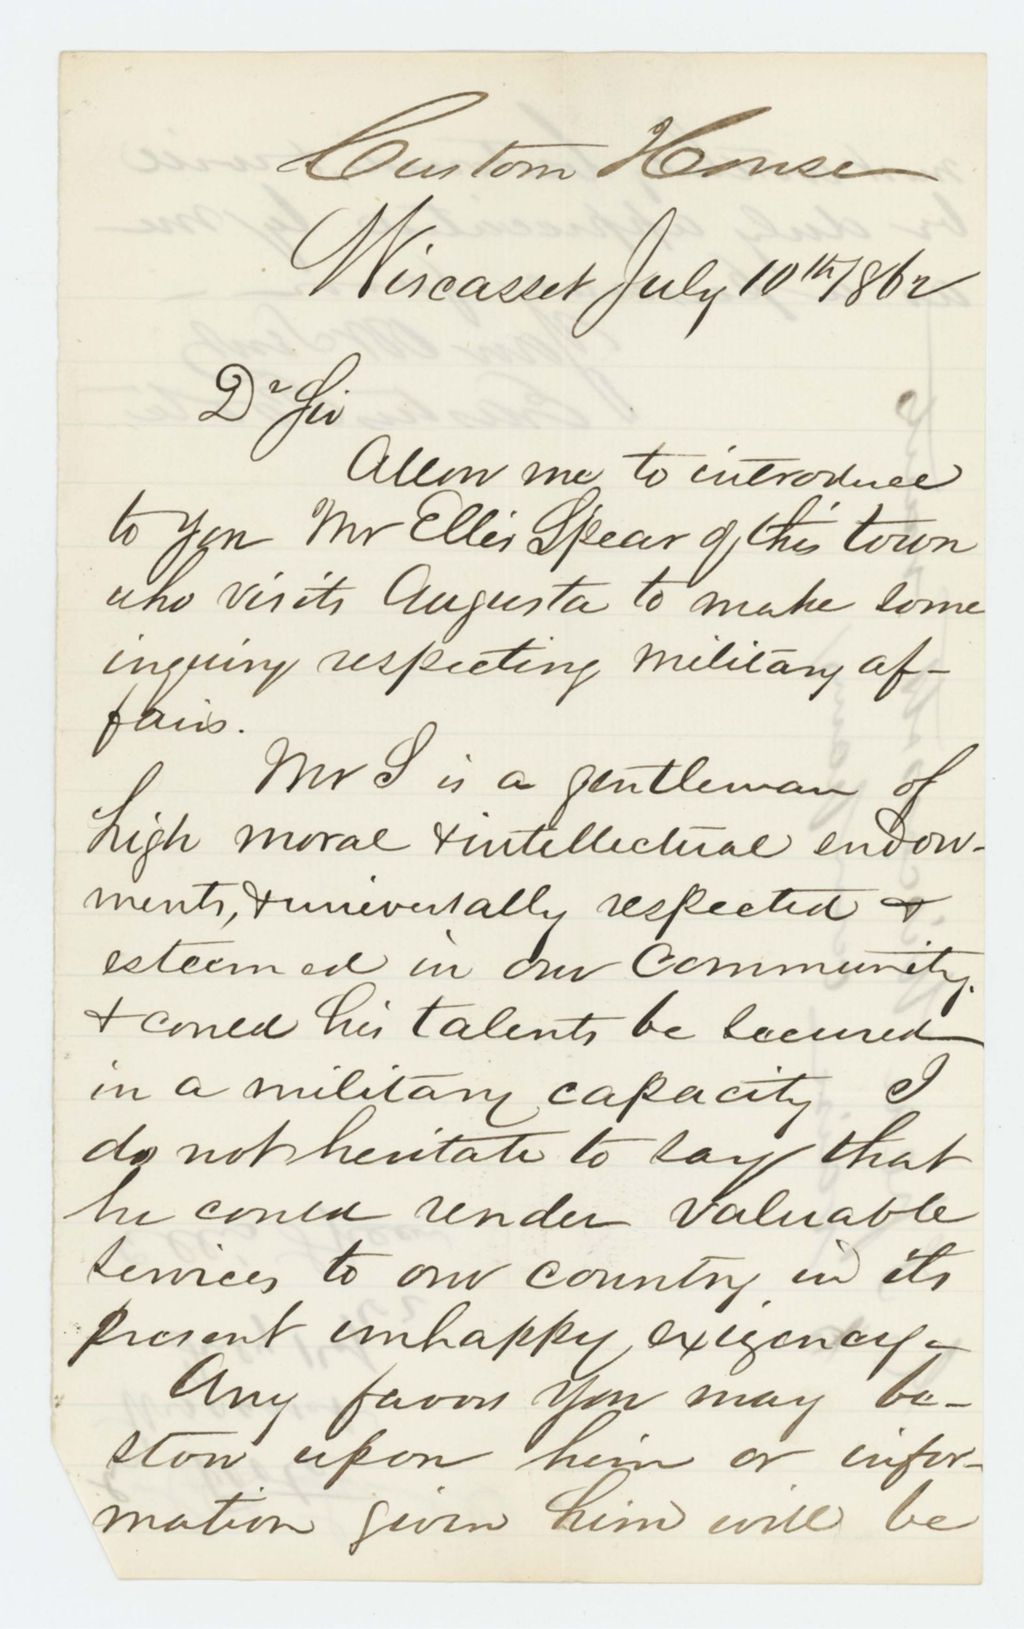 Custom House
Wiscasset July 10th/862
Dr Sir
Allow me to introduce
to you Mr Ellis Spear of this town
who visits Augusta to make some
inquiry respecting military af-
fairs.
Mr S is a gentleman of
high moral & intellectual endow-
ments, & universally respected &
esteemed in our Community.
& could his talents be secured
in a military capacity I
do not hesitate to say that
he could render valuable
services to our country in its
present unhappy exigency-
Any favors you may be-
stow upon him or infor-
mation given him will be